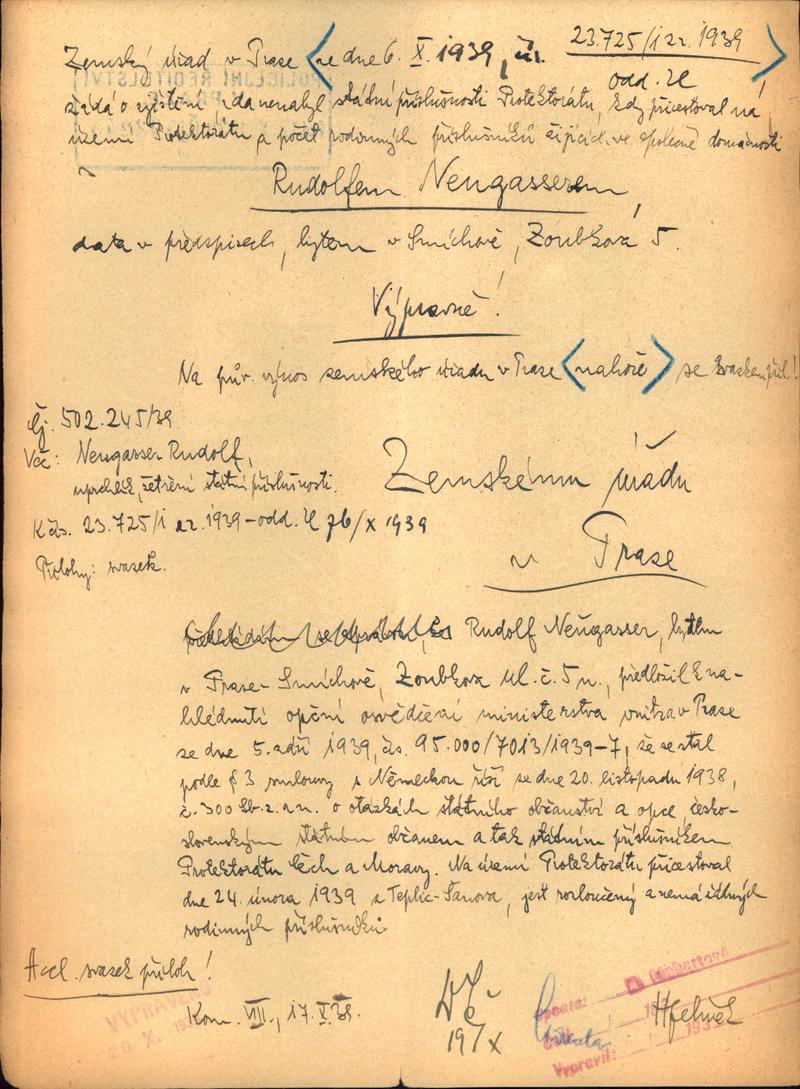 Zemský úřad v Praze ze dne 6. X. 1939, čís. 23.725/I zz. 1939
odd.
žádá o zjištění, zda nenabyl státní příslušnosti Protektorátu, kdy přicestoval na
území Protektorátu a počet rodinných příslušníků žijících ve společné domácnosti
s
Rudolfem Neugasserem,
data v předspisech, bytem v Smíchově, Zoubkova 5.
Výpravně!
Na pův. výnos zemského úřadu v Praze <nahoře> se svazkem příl.!
Čj. 502.245/39.
Věc: Neugasser Rudolf,
uprchlík, šetření státní příslušnosti.
K čís. 23.725/I zz. 1939 - odd. z 6/X 1939
Přílohy: svazek.
Zemskému úřadu
v Praze
Rudolf Neugasser, bytem
v Praze - Smíchově, Zoubkova ul. č. 5 n., předložil k na-
hlédnutí opční osvědčení ministerstva vnitra v Praze
ze dne 5. září 1939, čís. 95.000/7013/1939-7, že se stal
podle § 3 smlouvy s Německou říší ze dne 20. listopadu 1938,
č. 300 Sb. z. a n. o otázkách státního občanství a opce, česko-
slovenským státním občanem a tak státním příslušníkem
Protektorátu Čech a Moravy. Na území Protektorátu přicestoval
dne 24. února 1939 z Teplic-Šanova, jest rozloučený a nemá žádných
rodinných příslušníků.
Accl. svazek příloh!
Kom. VIII., 17.X.39.
19/X
VYPRAVENO
20 X. 193
193
Vypravil: